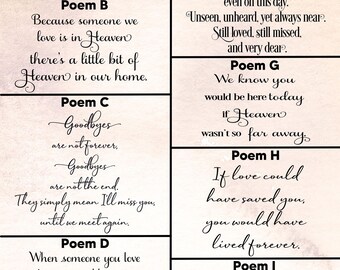 Poem B
Because someone we
love is in Heaven
there's a little bit of
Heaven in our home.
Poem C
Goodbyes
are not forever,
Goodbyes
are not the end.
They simply mean I'll miss you,
until we meet again,
Poem D
When someone you love
even on this day.
Unseen, unheard, yet always near.
Still loved, still missed,
and very dear.
Poem G
We know you
would be here today
if Heaven
wasn't so far away.
Poem H
If love could
have saved you,
you would have
lived forever.
Poem I